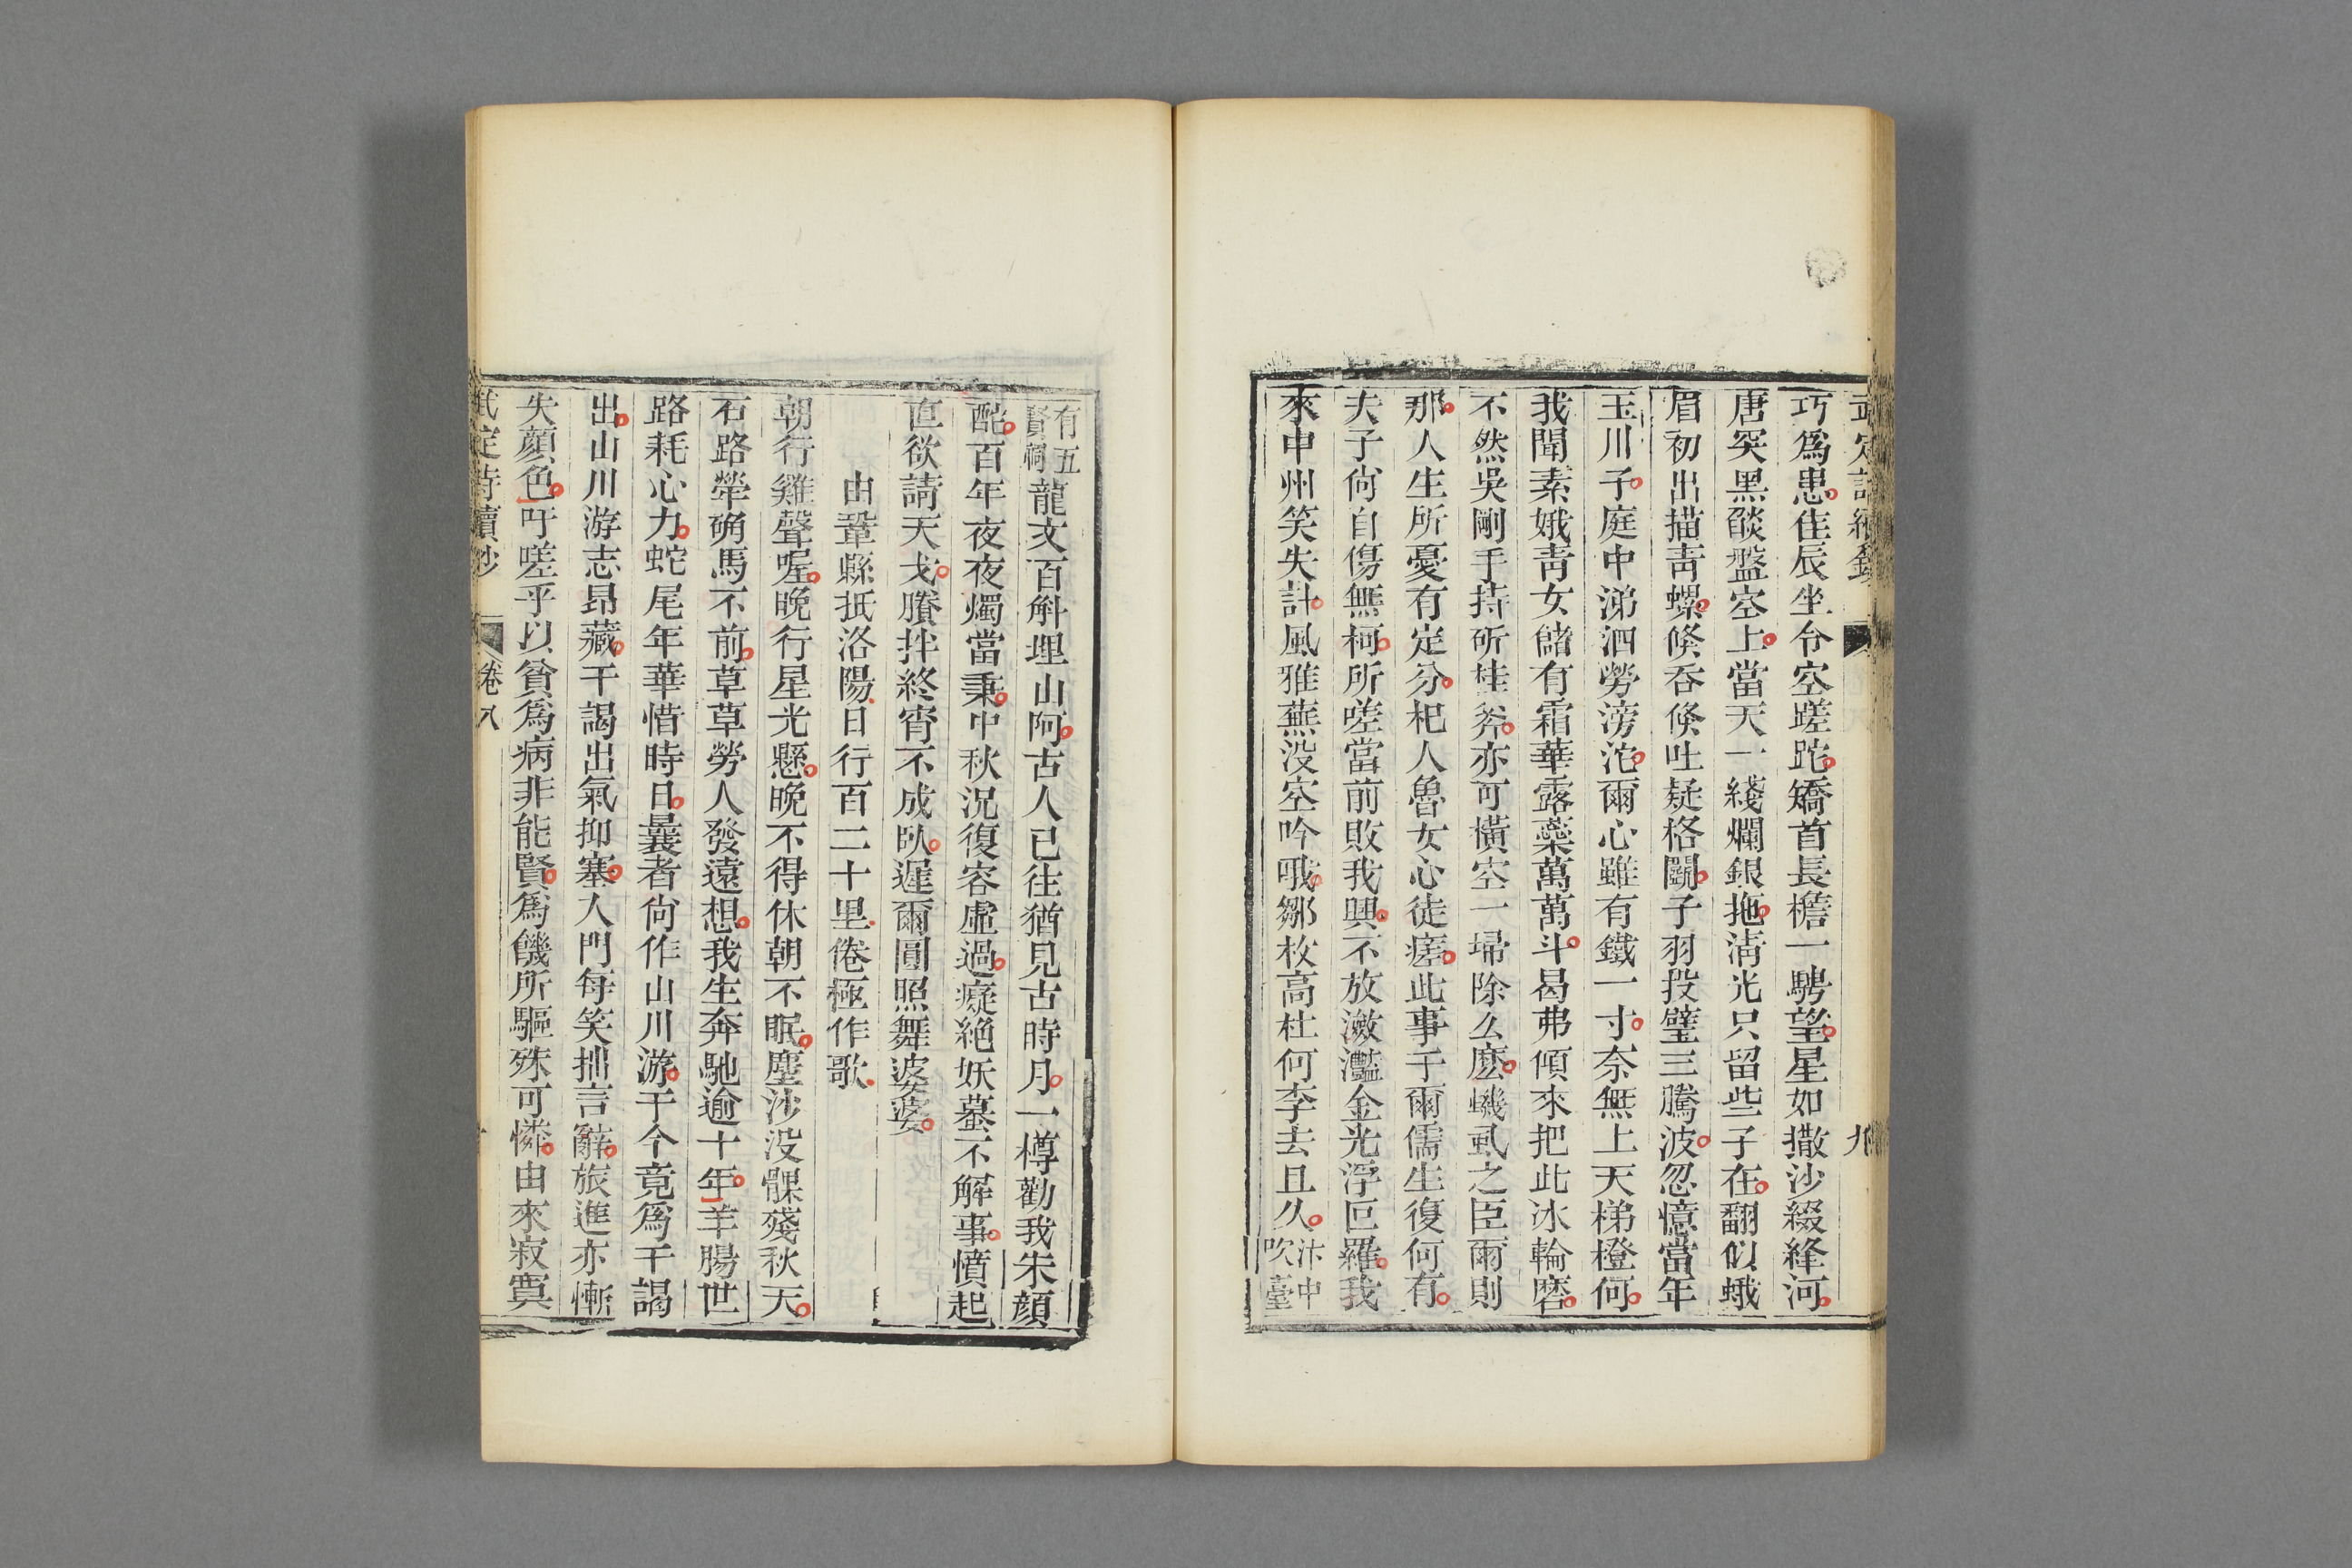 巧爲患佳辰坐令空蹉跎矯首長檐一騁望星如撒沙綴絳河
唐突黑燄盤空上當天一綫爛銀拖淸光只留些子在翻似蛾
眉初出描靑螺倏呑倏吐疑格鬭子羽投璧三騰波忽憶當年
玉川子庭中涕泗勞滂沱爾心雖有鐵一寸奈無上天梯橙何
我聞素娥靑女儲有霜華露藥萬萬斗曷弗傾來把此冰輪磨
不然吳剛手持斫桂斧亦可橫空一埽除么麽蟣虱之臣爾則
那人生所憂有定分杞人魯女心徒瘥此事于爾儒生復何有
夫子尙自傷無柯所嗟當前敗我興不放瀲灩金光浮叵羅我
來中州笑失計風雅蕪没空吟哦鄒枚高杜何李去且久汴中吹臺
有五賢祠龍文百斛埋山阿古人已往猶見古時月一樽勸我朱顔
酡百年夜夜燭當秉中秋況復容虛過癡絕妖蟇不解事憤起
直欲請天戈賸拌終宵不成臥遲爾圓照舞婆婆
由鞏縣抵洛陽日行百二十里倦極作歌
朝行雞聲喔晚行星光懸晚不得休朝不眠塵沙没髁殘秋天
石路犖确馬不前草草勞人發遠想我生奔馳逾十年羊腸世
路耗心力蛇尾年華惜時日曩者尙作山川游于今竟爲干謁
出山川游志昂藏干謁出氣抑塞入門每笑拙言辭旅進亦慚
失顔色吁嗟乎以貧爲病非能賢爲饑所驅殊可憐由來寂寞
卷八
九